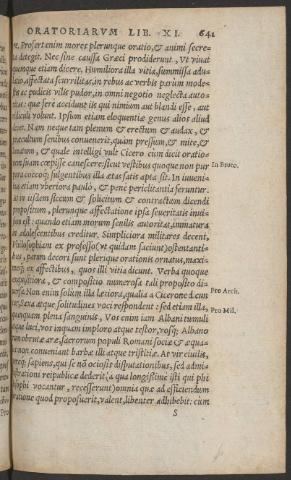 ORATORIARVM LIB. XI. 641
re. Profert enim mores plerunque oratio, & animi secre-
ta detegit. Nec sine caussa Græci prodiderunt, Vt viuat
quenque etiam dicere. Humiliora illa vitia, summissa adu-
latio, affectata scurrilitas, in rebus ac verbis parum mode-
stis ac pudicis vilis pudor, in omni negotio neglecta auto-
ritas: quæ fere accidunt iis qui nimium aut blandi esse, aut
ridiculi volunt. Ipsum etiam eloquentiæ genus alios aliud
decet. Nam neque tam plenum & erectum & audax, &
præcultum senibus conuenerit, quàm pressum, & mite, &
limatum, & quale intelligi vult Cicero cùm dicit oratio-
nem suam cœpisse canescere: sicut vestibus quoque non pur
pura coccóq; fulgentibus illa ætas satis apta sit. In iuueni-
bus etiam vberiora paulò, & penè periclitantia feruntur.
At in iisdem siccum & solicitum & contractum dicendi
propositum, plerunque affectatione ipsa seueritatis inui-
sum est: quando etiam morum senilis autoritas, immatura
in adolescentibus creditur. Simpliciora militares decent.
Philosophiam ex professo (vt quidam faciunt) ostentanti-
bus, parum decori sunt plerique orationis ornatus, maxi-
méq; ex affectibus, quos illi vitia dicunt. Verba quoque
exquisitiora, & compositio numerosa tali proposito di-
uersa. Non enim solum illa lætiora, qualia a Cicerone dicun
tur, Saxa atque solitudines voci respondent: sed etiam illa,
quanquam plena sanguinis, Vos enim iam Albani tumuli
atque luci, vos inquam imploro atque testor, vosq; Albano
rum obrutæ aræ, sacrorum populi Romani sociæ & æqua-
les: non conueniant barbæ illi atque tristitiæ. At vir ciuilis,
veréq; sapiens, qui se nō ociosis disputationibus, sed admi-
nistrationi reipublicæ dederit (a qua longissimè isti qui phi
losophi vocantur, recesserunt) omnia quæ ad efficiendum
oratione quod proposuerit, valent, libenter adhibebit: cùm
In Bruto.
Pro Arch.
Pro Mil.
S